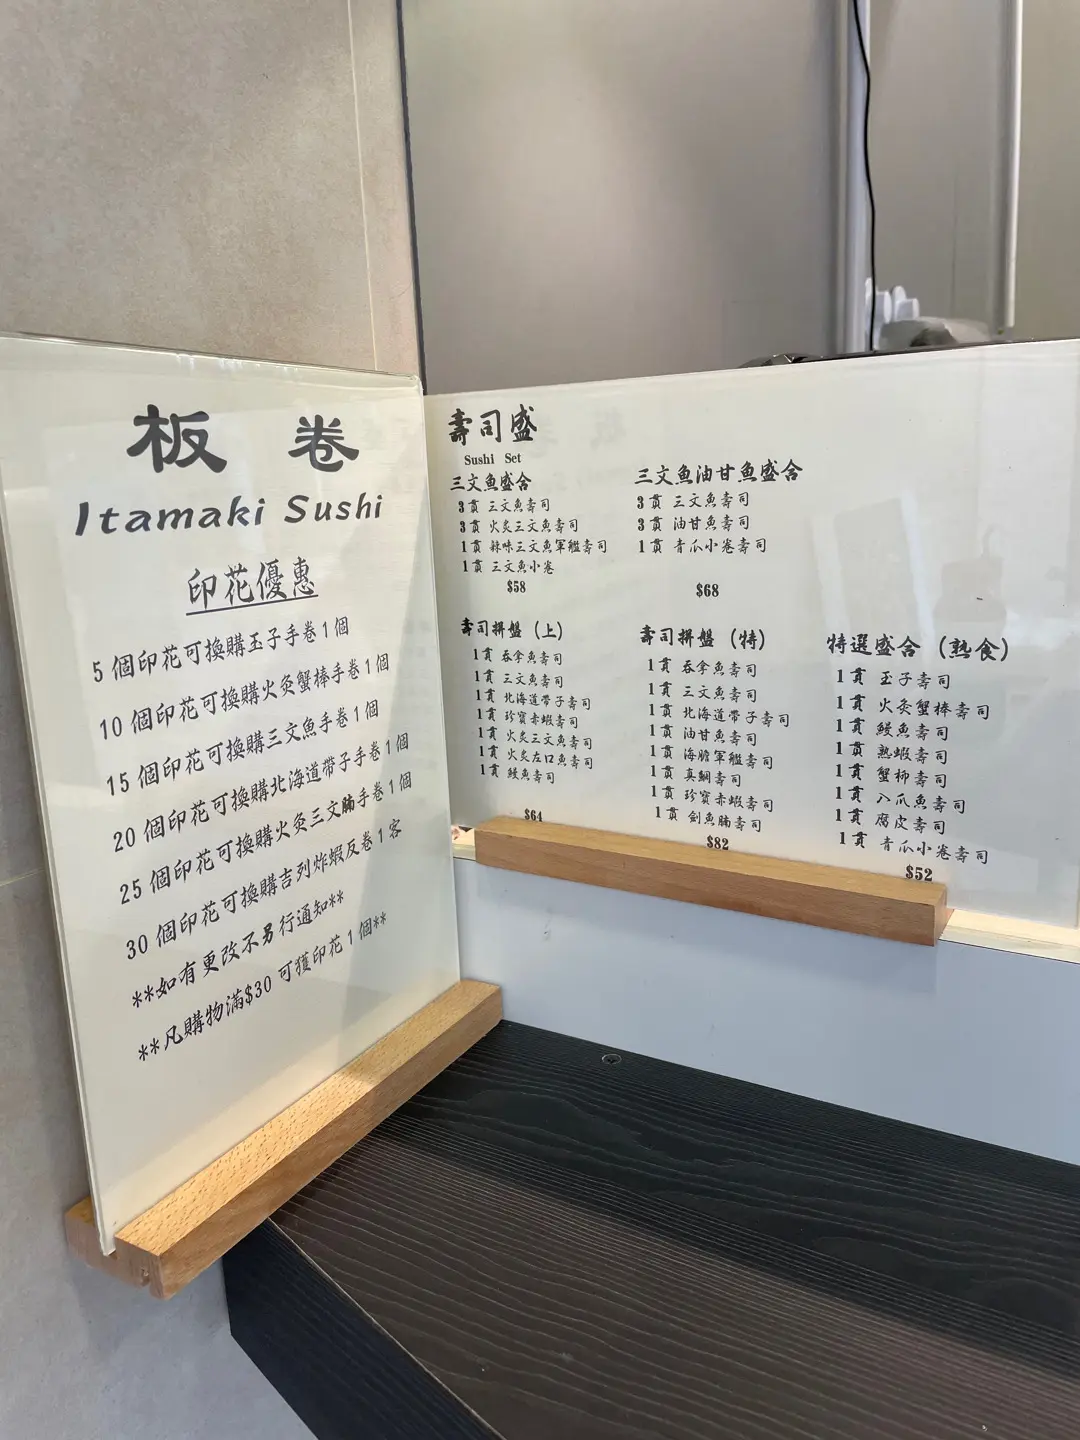 板卷
Itamaki Sushi
印花優惠
5 個印花可換購玉子手卷1個
10 個印花可換購火灸蟹棒手卷1個
15 個印花可換購三文魚手卷1個
20 個印花可換購北海道帶子手卷1個
25 個印花可換購火灸三文腩手卷1個
30 個印花可換購吉列炸蝦反卷1客
**如有更改不另行通知**
**凡購物滿$30 可獲印花1個**
壽司盛
Sushi Set
三文魚盛合
3貫 三文魚壽司
3貫 火炙三文魚壽司
1貫 辣味三文魚軍艦壽司
1貫 三文魚小卷
$58
三文魚油甘魚盛合
3貫 三文魚壽司
3貫 油甘魚壽司
1貫 青瓜小卷壽司
$68
壽司拼盤 (上)
1貫 吞拿魚壽司
1貫 三文魚壽司
1貫 北海道帶子壽司
1貫 珍寶赤蝦壽司
1貫 火炙三文魚壽司
1貫 火炙左口魚壽司
1貫 鰻魚壽司
$64
壽司拼盤 (特)
1貫 吞拿魚壽司
1貫 三文魚壽司
1貫 北海道帶子壽司
1貫 油甘魚壽司
1貫 海膽軍艦壽司
1貫 真鯛壽司
1貫 珍寶赤蝦壽司
1貫 劍魚腩壽司
$82
特選盛合 (熟食)
1貫 玉子壽司
1貫 火灸蟹棒壽司
1貫 鰻魚壽司
1貫 熟蝦壽司
1貫 蟹柳壽司
1貫 八爪魚壽司
1貫 腐皮壽司
1貫 青瓜小卷壽司
$52